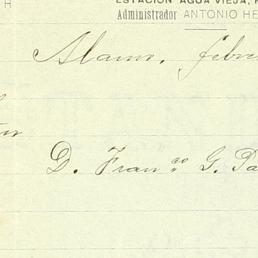 ESTACIÓN AGUA VIEJA,
Administrador ANTONIO HE
Alamos, febre
D. Fran.co G. Pa